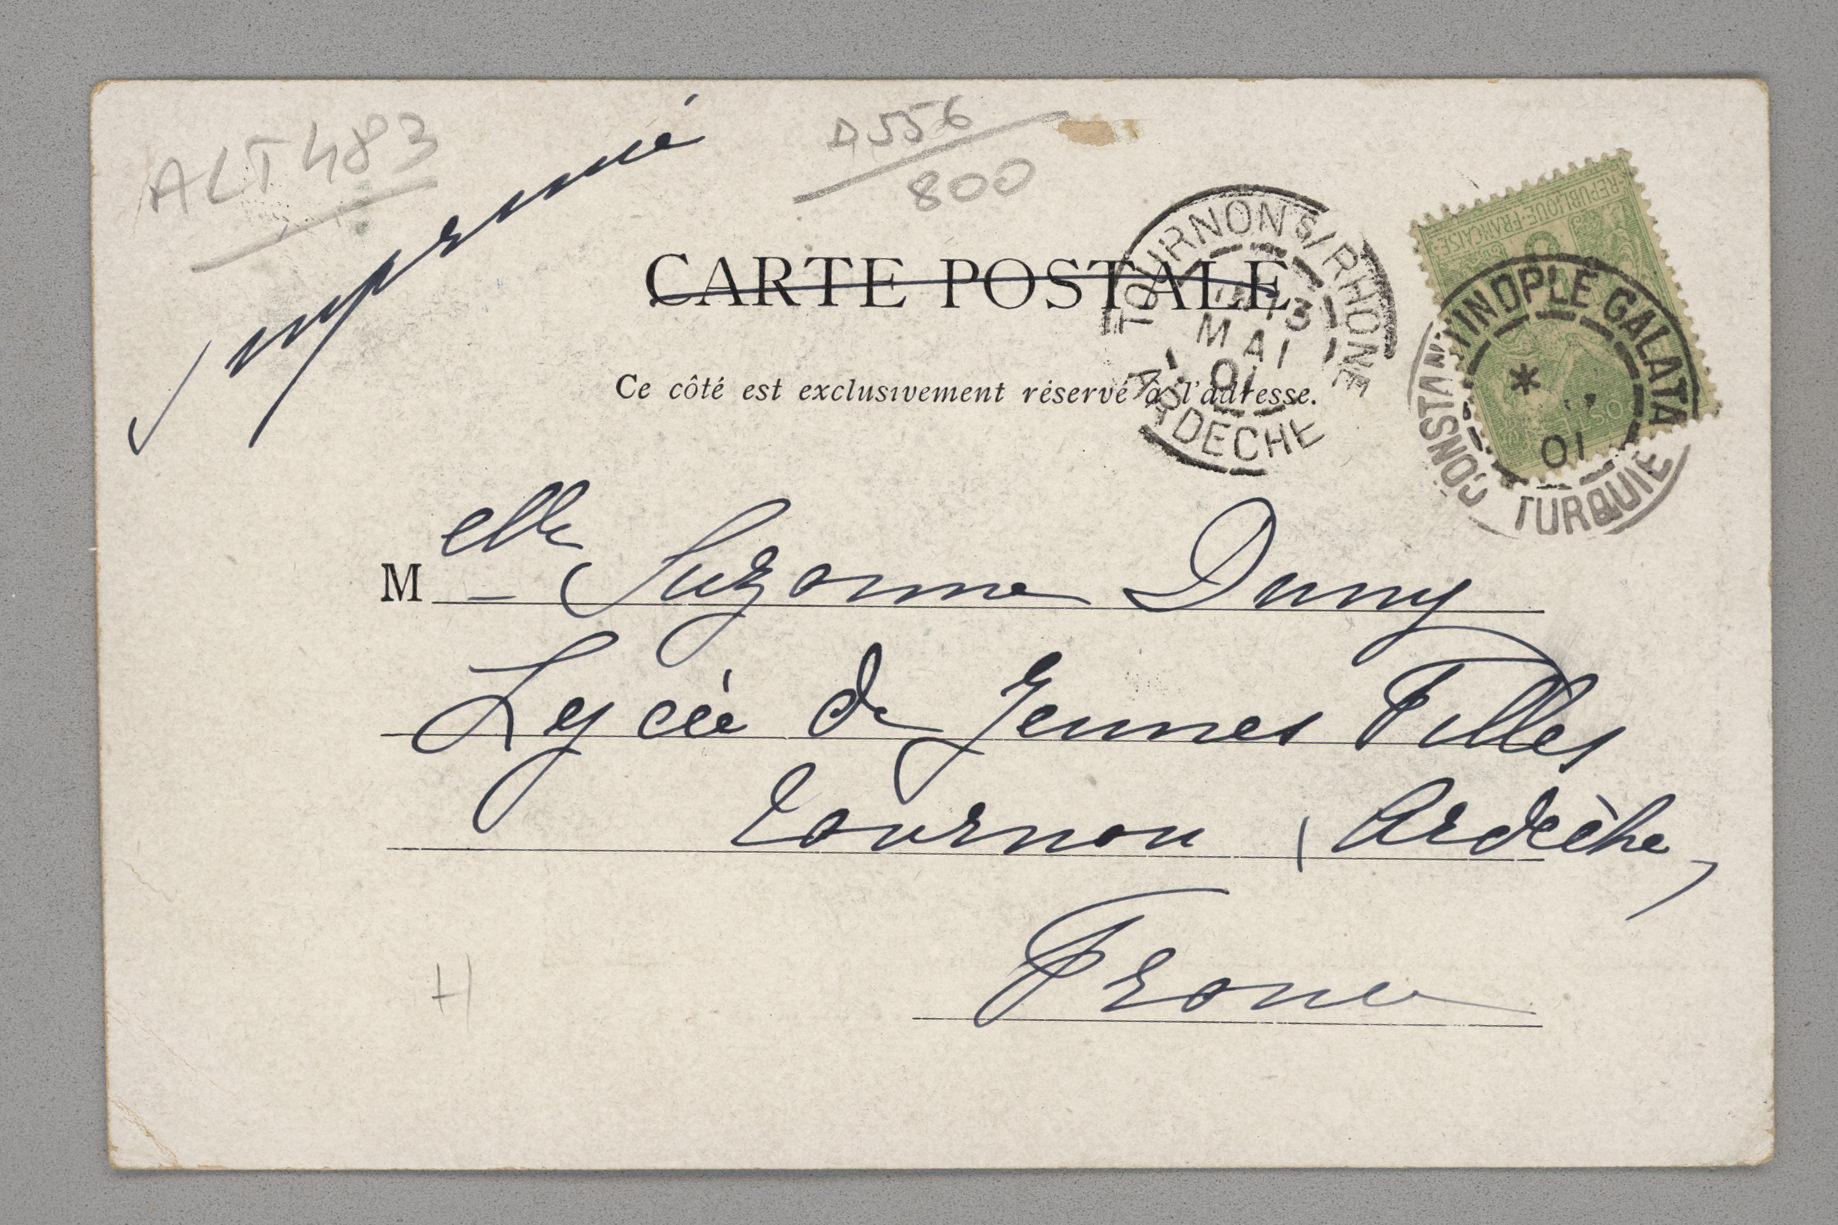 ALT 483
A 556
800
Imprimé
CARTE POSTALE
Ce côté est exclusivement réservé à l'adresse.
TOURNON S/ RHONE
13
MAI
01
ARDECHE
REPUBLIQUE FRANÇAISE
CONSTANTINOPLE GALATA
*
01
TURQUIE
Melle Suzanne Duny
Lycée de Jeunes Filles
Tournon (Ardèche)
France
H